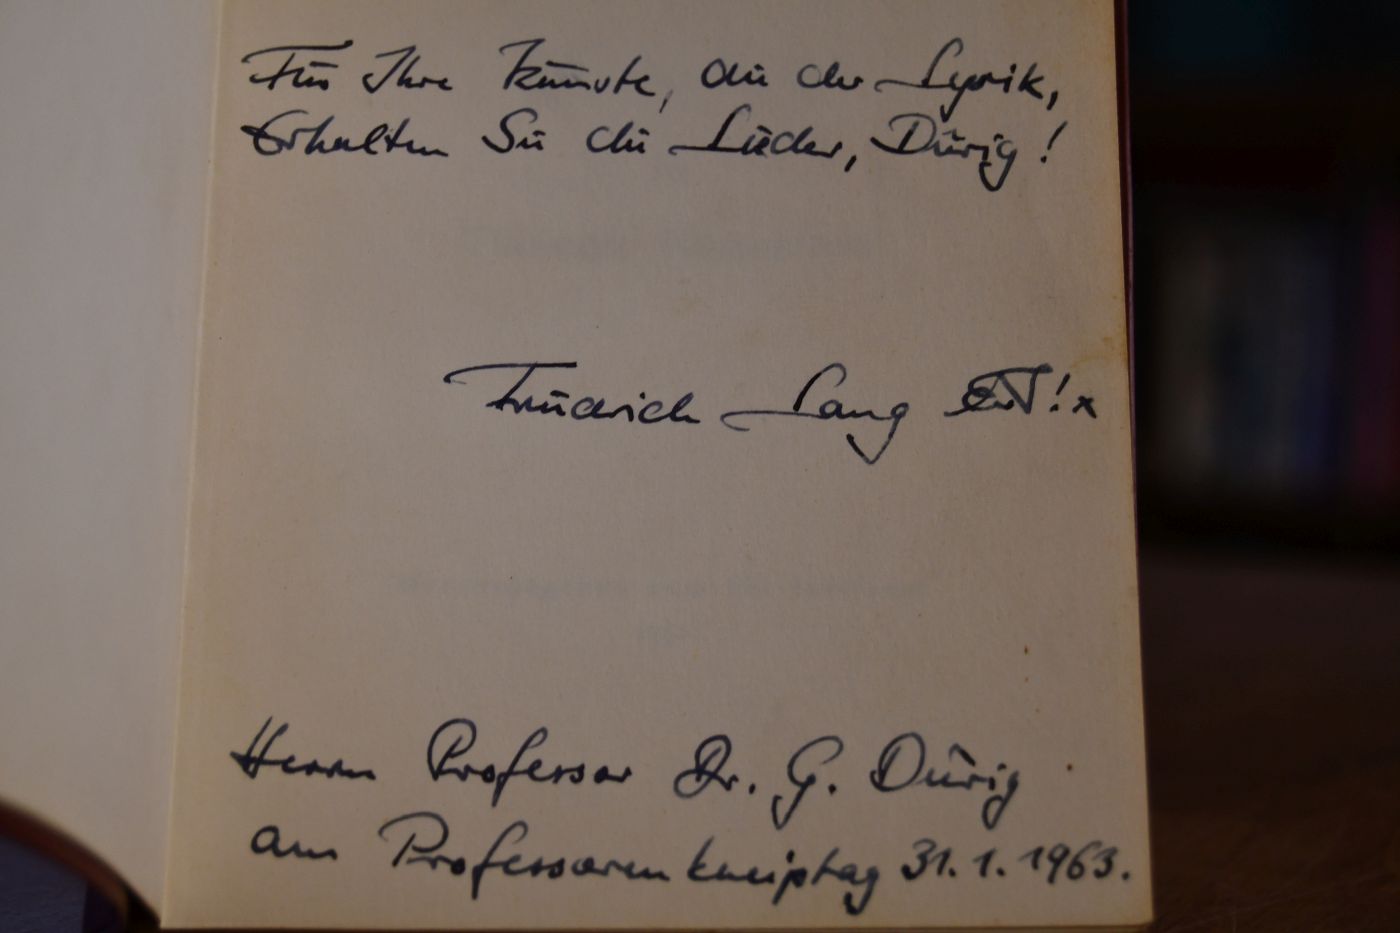 Für Ihre die der Lyrik,
Erhalten Sie die Lieder, Dürig!
Friedrich Lang
Herrn Professor Dr. G. Dürig
am Professorenkneiptag 31.1.1963.